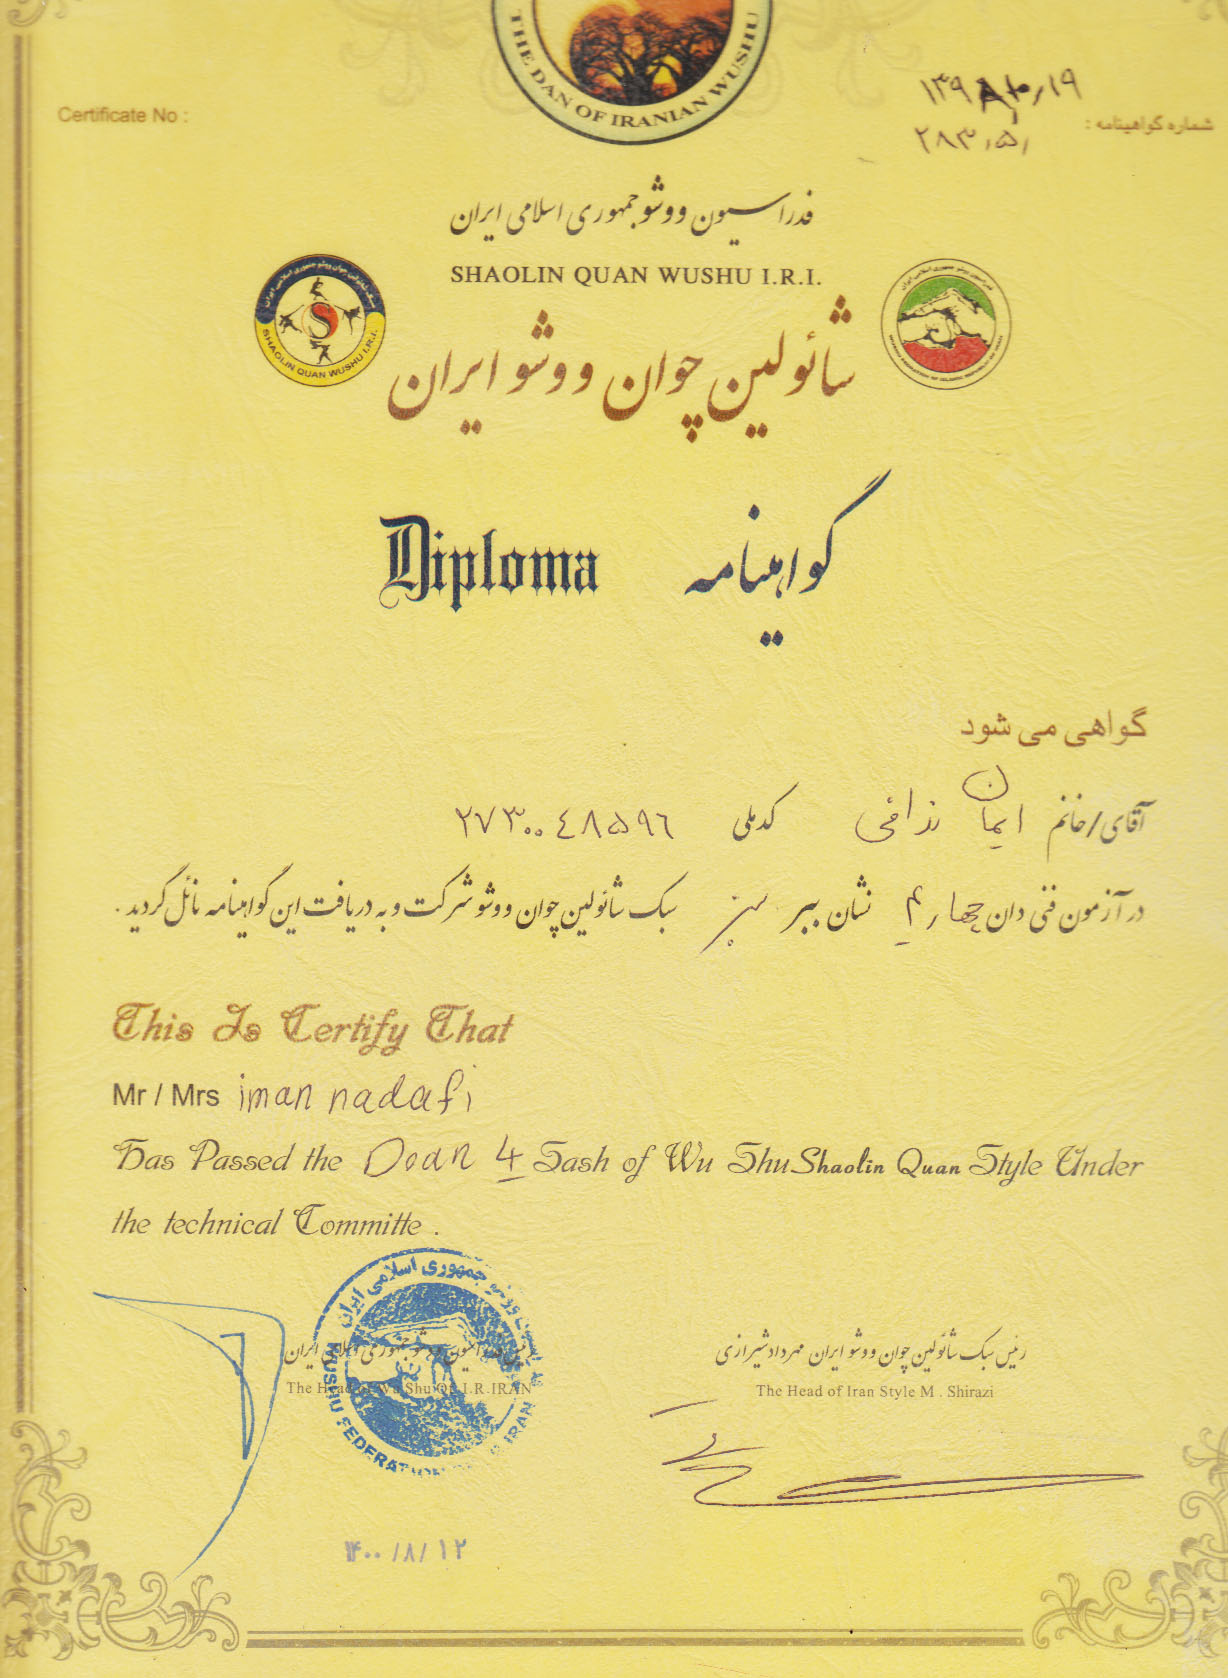 THE DAN OF IRANIAN WUSHU
Certificate No :
شماره گواهینامه :
۲۸۳٫۵٫
فدراسیون ووشو جمهوری اسلامی ایران
SHAOLIN QUAN WUSHU I.R.I.
SHAOLIN QUAN WUSHU I.R.I.
شائولین چوان ووشو ایران
Diploma گواهینامه
گواهی می شود
آقای/خانم ایمان ندافی کدملی ۲۷۳۰۰۴۸۵۹۶
در آزمون فنی دان چهارم نشان ببر سبز سبک شائولین چوان ووشو شرکت و به دریافت این گواهینامه نائل گردید .
This Is Certify That
Mr / Mrs iman nadafi
Has Passed the Doan 4 Sash of Wu Shu Shaolin Quan Style Under
the technical Committe .
جمهوری اسلامی ایران
WUSHU FEDERATION IRAN
رئیس فدراسیون ووشو جمهوری اسلامی ایران
The Head of Wu Shu Of I.R.IRAN
رئیس سبک شائولین چوان ووشو ایران مهرداد شیرازی
The Head of Iran Style M . Shirazi
۱۴۰۰/۸/۱۲